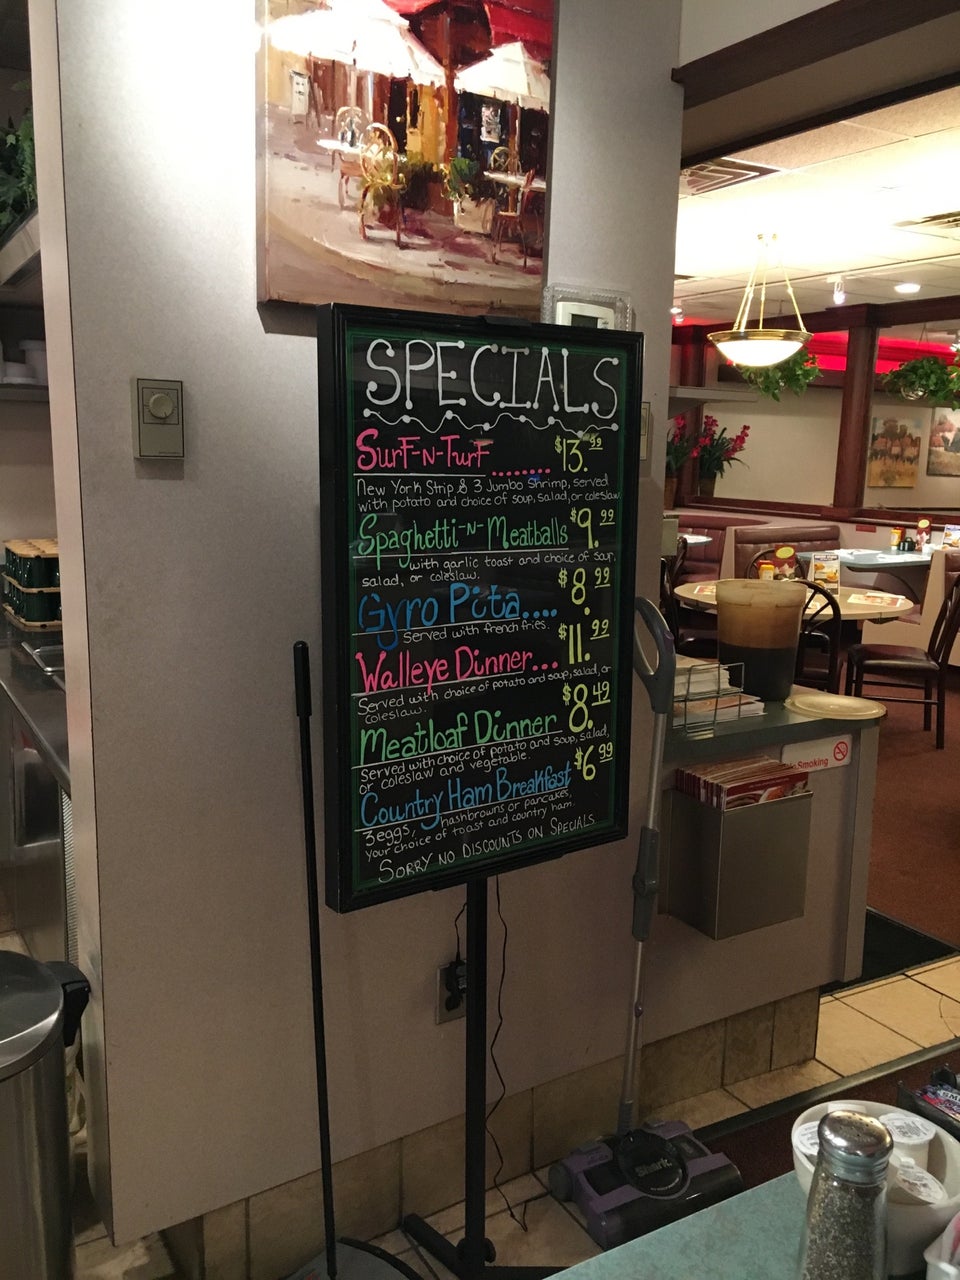 SPECIALS
Surf-N-Turf........ $13.99
New York Strip & 3 Jumbo Shrimp, served
with potato and choice of soup, salad, or coleslaw
Spaghetti-N-Meatballs $9.99
with garlic toast and choice of soup,
salad, or coleslaw.
Gyro Pita.... $8.99
Served with french fries.
Walleye Dinner... $11.99
Served with choice of potato and soup, salad, or
coleslaw.
Meatloaf Dinner $8.49
Served with choice of potato and soup, salad,
or coleslaw and vegetable.
Country Ham Breakfast $6.99
3 eggs, hashbrowns or pancakes,
your choice of toast and country ham.
Sorry no discounts on Specials
Smoking
Shark